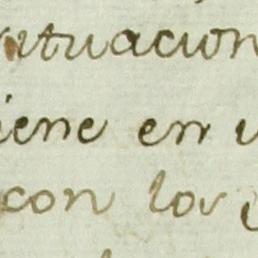 situacion
iene en
con los